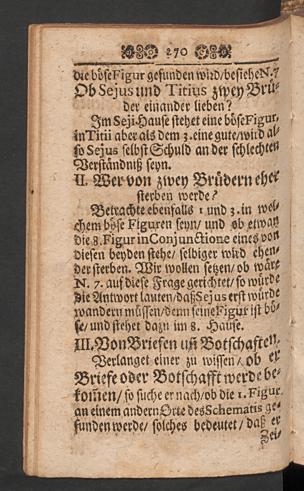 270
die böse Figur gefunden wird/ besiehe N. 7
Ob Sejus und Titius zwey Brü-
der einander lieben?
Im Seji-Hause stehet eine böse Figur,
in Titii aber als dem 3. eine gute/ wird al-
so Sejus selbst Schuld an der schlechten
Verständniß seyn.
II. Wer von zwey Brüdern eher
sterben werde?
Betrachte ebenfalls 1 und 3. in wel-
chem böse Figuren seyn/ und ob etwan
die 8. Figur in Conjunctione eines von
diesen beyden stehe/ selbiger wird ehen-
der sterben. Wir wollen setzen/ ob wäre
N. 7. auf diese Frage gerichtet/ so würde
die Antwort lauten/ daß Sejus erst würde
wandern müssen/ denn seine Figur ist bö-
se/ und stehet dazu im 8. Hause.
III. Von Briefen uñ Botschaften.
Verlanget einer zu wissen/ ob er
Briefe oder Botschafft werde be-
kom̃en/ so suche er nach/ ob die 1. Figur
an einem andern Orte des Schematis ge-
funden werde/ solches bedeutet/ daß er
Zei-